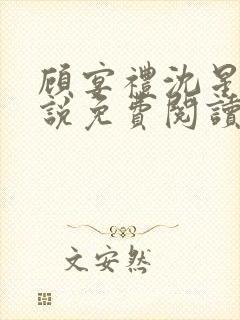 顾宴禮沈星
説免費閱讀
文安然